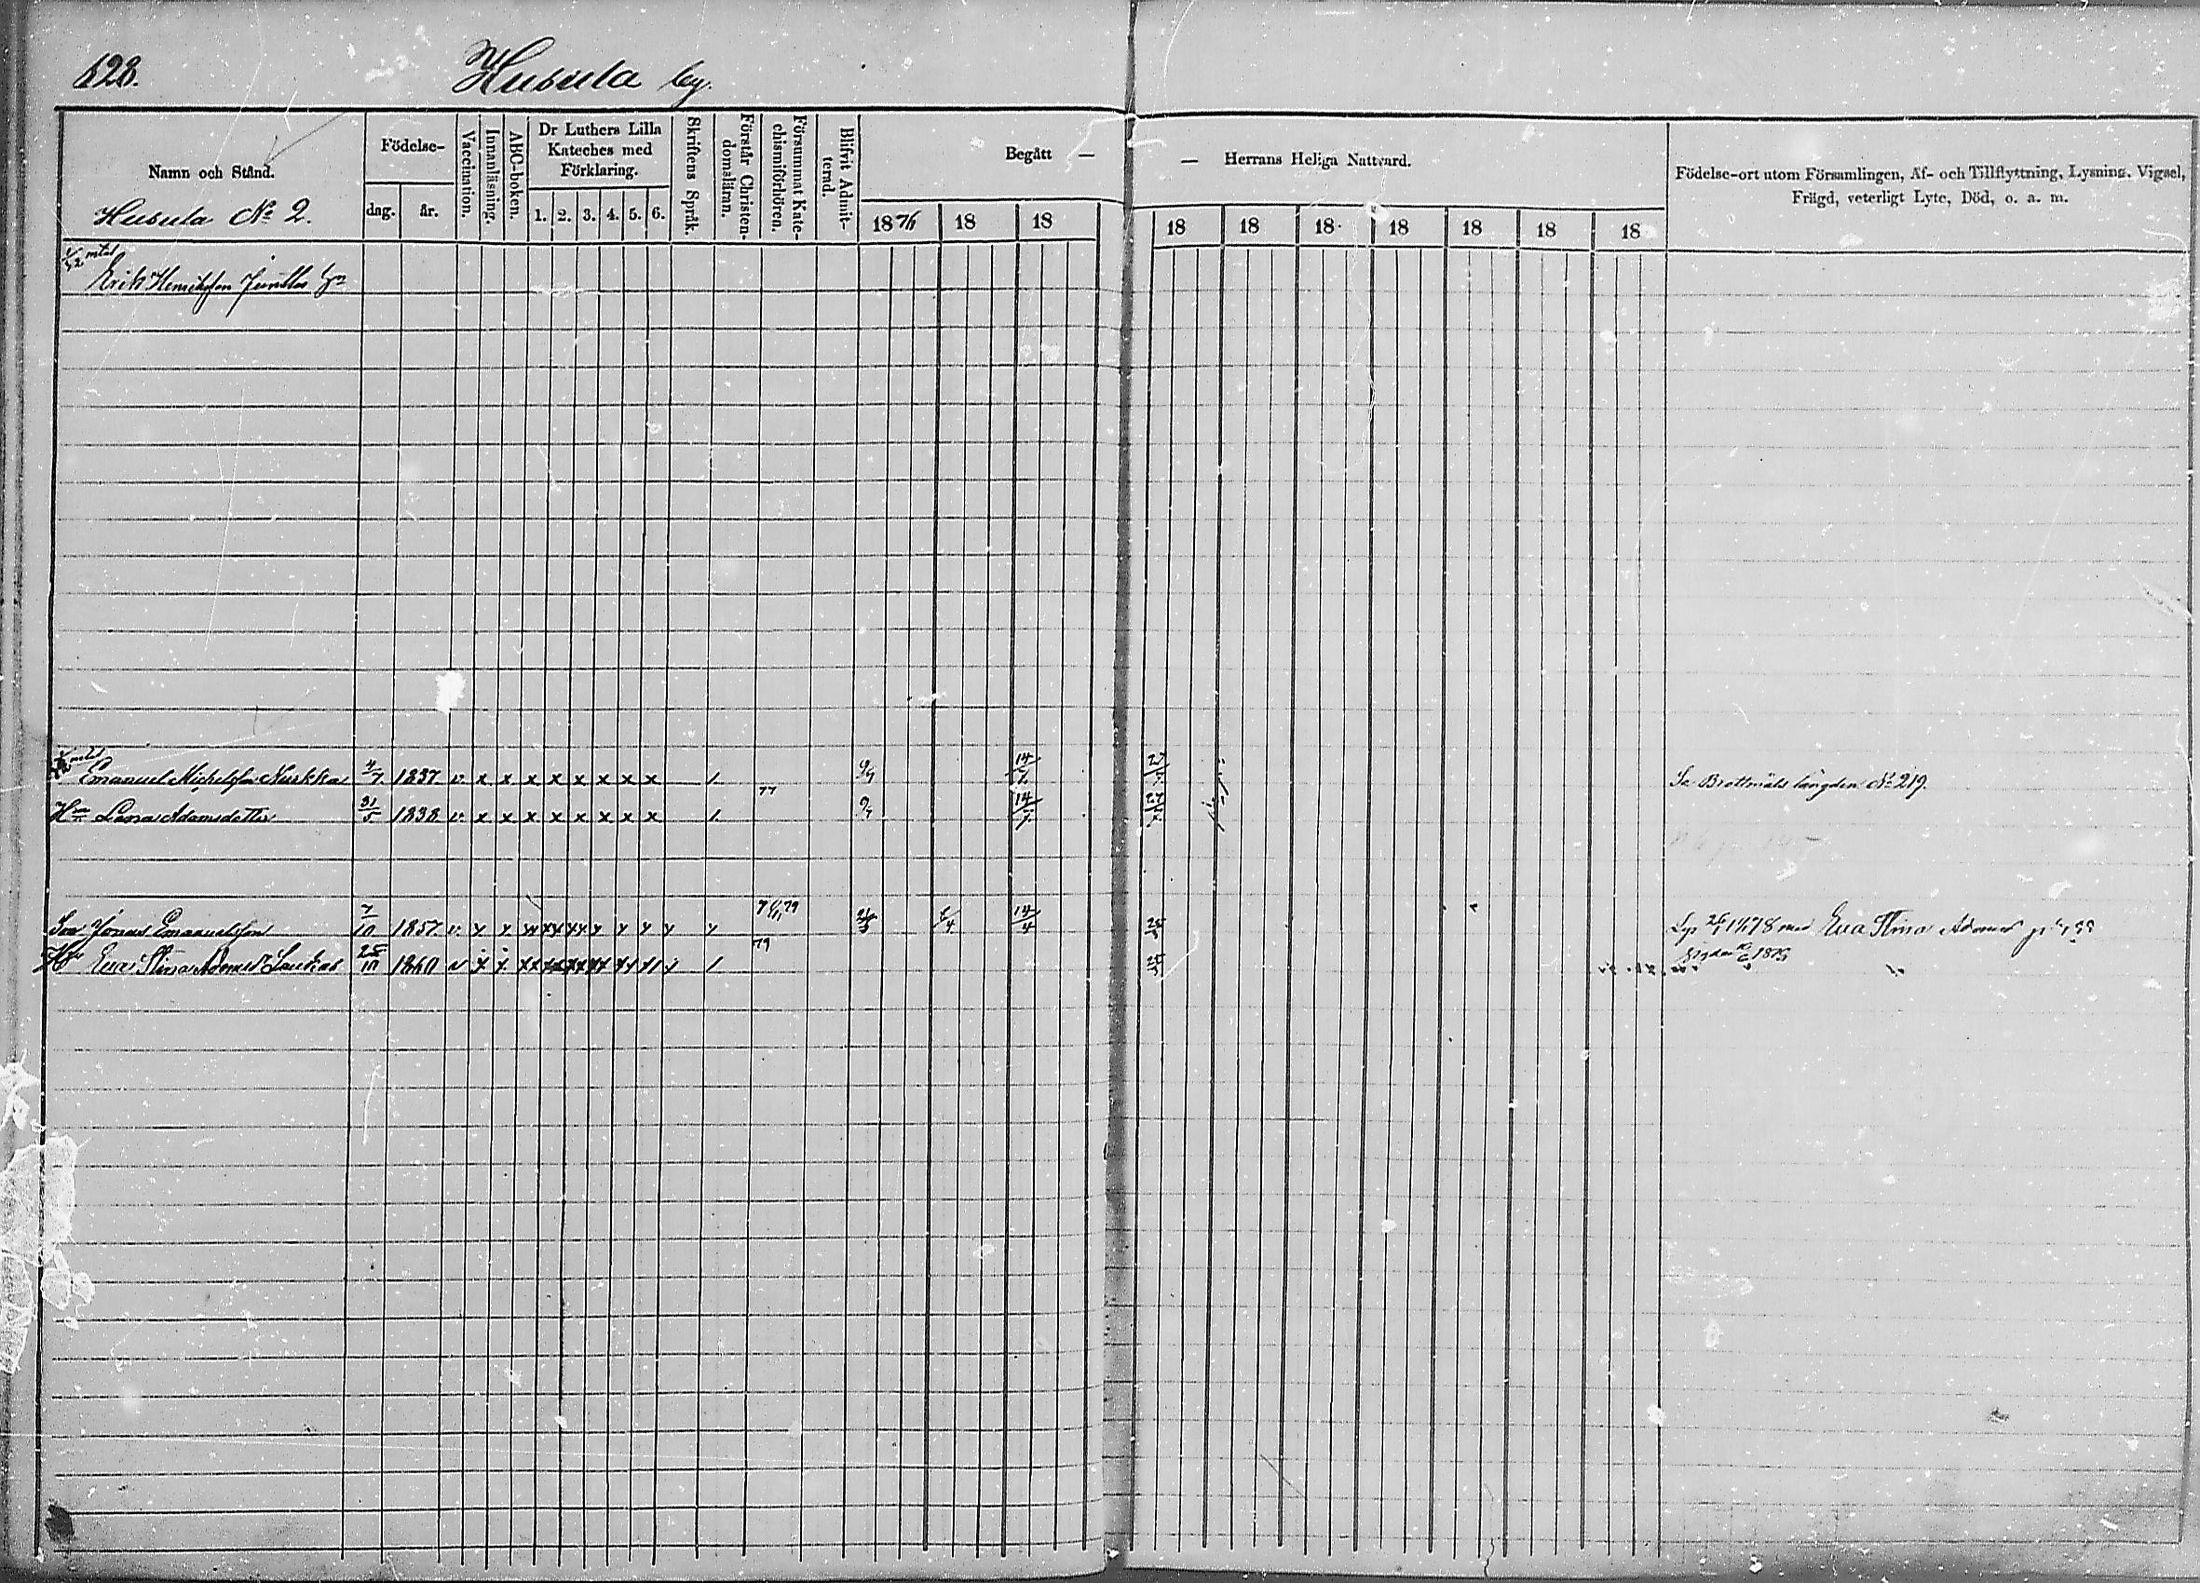 628. Husula by.
Namn och Stånd.
Husula No 2.
Födelse-
dag. år.
Vaccination.
Innanläsning.
ABC-boken.
Dr Luthers Lilla
Kateches med
Förklaring.
1. 2. 3. 4. 5. 6.
Skriftens Språk.
Förstår Christen-
domsläran.
Försummat Kate-
chismiförhören.
Blifvit Admit-
terad.
Begått —
— Herrans Heliga Nattvard.
1876 18 18 18 18 18 18 18 18 18
Födelse-ort utom Församlingen, Af- och Tillflyttning, Lysning, Vigsel,
Frägd, veterligt Lyte, Död, o. a. m.
mtal
Erik Henrikson
mtal
Emanuel Michelsson Nurkka 4/7 1837 v. x x x x x x x x 1. 14/7 27/7 Se Brottmåls längden No 219.
77
Hu Lena Adamsdotter 31/5 1838 v. x x x x x x x x 1. 14/7 27/7
Son Jonas Emanuelsson 7/10 1857 v. 14/4 25/3 1878 med Eva Stina
79
Eva Stina 25/10 1860 v 1 25/3